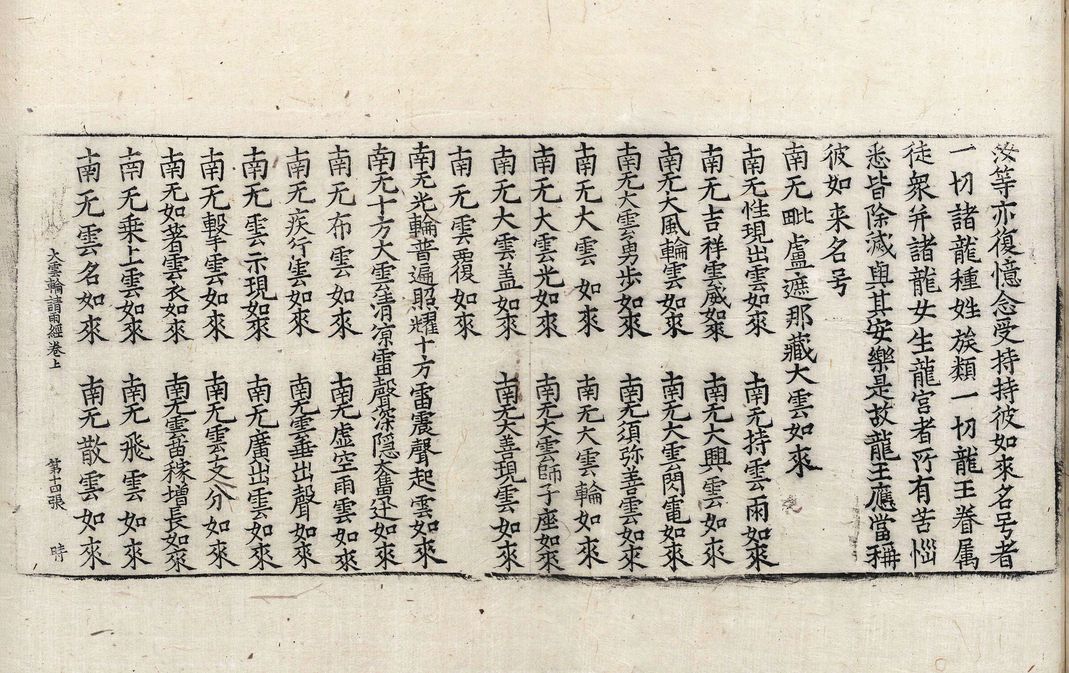 汝等亦復憶念受持持彼如來名号者
一切諸龍種姓族類一切龍王眷属
徒衆幷諸龍女生龍宮者所有苦惱
悉皆除滅與其安樂是故龍王應當稱
彼如來名号
南无毗盧遮那藏大雲如來
南无性現出雲如來 南无持雲雨如來
南无吉祥雲威如來 南无大興雲如來
南无大風輪雲如來 南无大雲閃電如來
南无大雲勇步如來 南无須弥善雲如來
南无大雲如來 南无大雲輪如來
南无大雲光如來 南无大雲師子座如來
南无大雲盖如來 南无大善現雲如來
南无雲覆如來
南无光輪普遍照耀十方雷震聲起雲如來
南无十方大雲清凉雷聲深隱奮迅如來
南无布雲如來 南无虛空雨雲如來
南无疾行雲如來 南无雲垂出聲如來
南无雲示現如來 南无廣出雲如來
南无擊雲如來 南无雲支分如來
南无如著雲衣如來 南无雲苗稼增長如來
南无乘上雲如來 南无飛雲如來
南无雲名如來 南无散雲如來
大雲輪請雨經卷上 第十四張 時